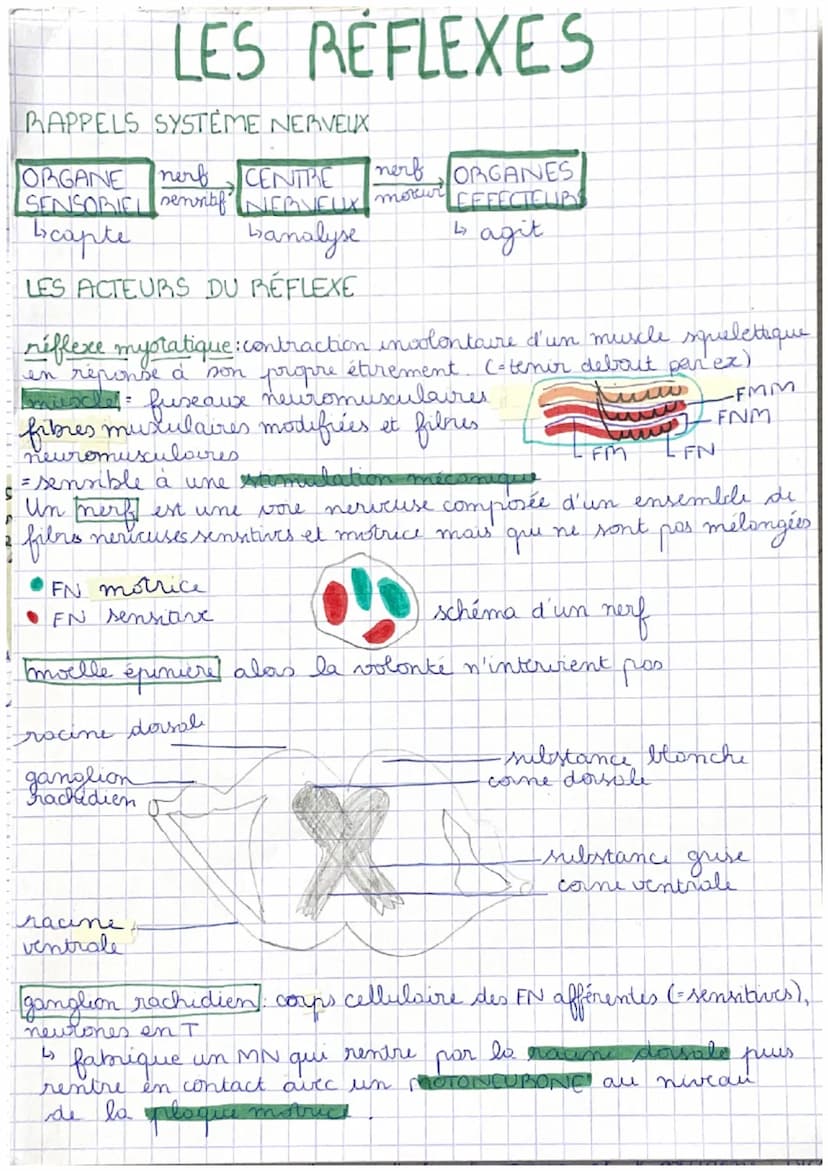 LES RÉFLEXES
RAPPELS SYSTÈME NERVEUX
ORGANE SENSORIEL nerf sensitif CENTRE NERVEUX nerf moteur ORGANES EFFECTEURS
↳ capte ↳ analyse ↳ agit
LES ACTEURS DU RÉFLEXE
réflexe myotatique : contraction involontaire d'un muscle squelettique
en réponse à son propre étirement. (=tenir debout par ex)
muscle = fuseaux neuromusculaires
fibres musculaires modifiées et fibres
neuromusculaires
FMM
FNM
FM FN
= sensible à une stimulation mécanique
Un nerf est une voie nerveuse composée d'un ensemble de
fibres nerveuses sensitives et motrice mais qui ne sont pas mélangées
• FN motrice
• FN sensitive
schéma d'un nerf
moelle épinière alors la volonté n'intervient pas
racine dorsale
substance blanche
ganglion rachidien
corne dorsale
substance grise
corne ventrale
racine ventrale
ganglion rachidien : corps cellulaire des FN afférentes (=sensitives),
neurones en T
↳ fabrique un MN qui rentre par la racine dorsale puis
rentre en contact avec un MOTONEURONE au niveau
de la plaque motrice.